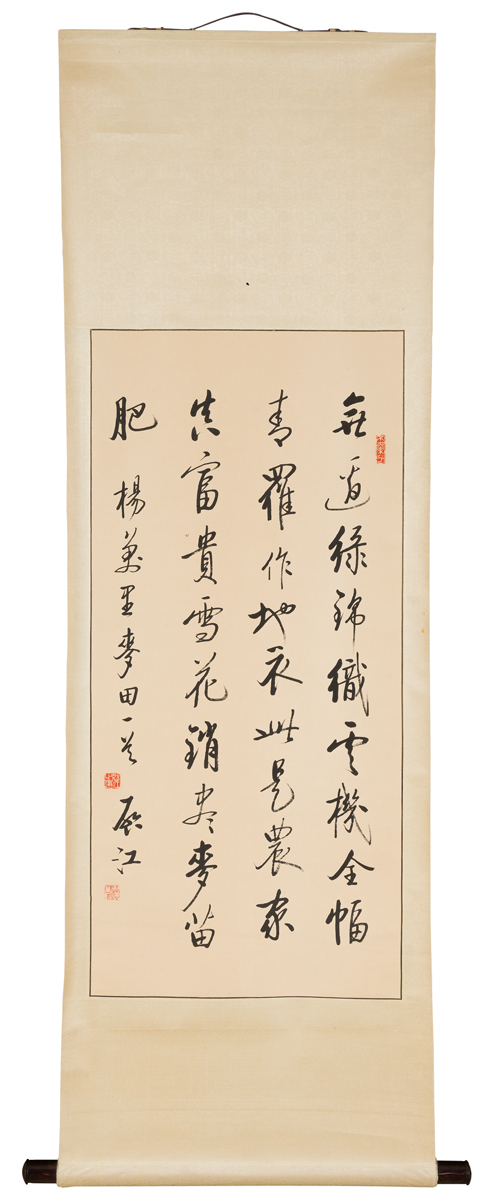 無邊綠錦織雲機全幅
青羅作地衣此是農家
真富貴雪花銷盡麥苗
肥 楊萬里麥田一首 江